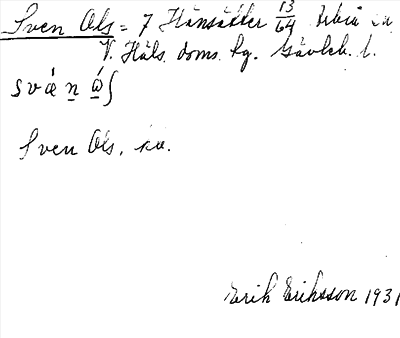 Sven Ols = 7 Hånsätter 13/64 Arbrå sn
V. Häls. doms. hg. Gävleb. l.
svǽn̲ ó̲ʃ
Sven Ols, sn.
Erik Eriksson 1931